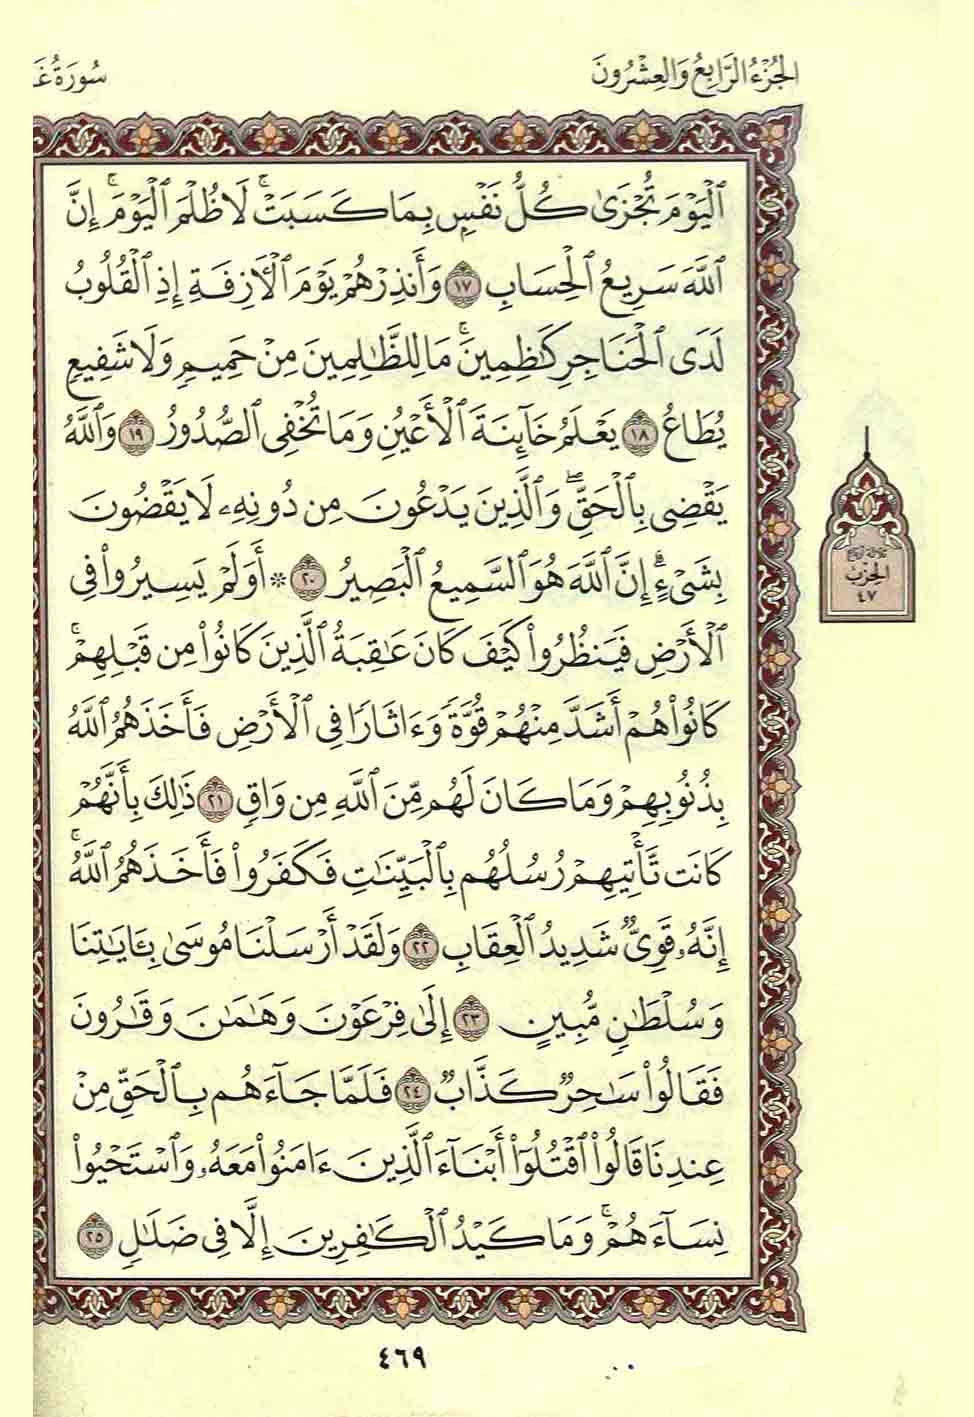 الجُزْءُ الرَّابِعُ وَالعِشْرُونَ
سُورَةُ
ٱلْيَوْمَ تُجْزَىٰ كُلُّ نَفْسٍ بِمَا كَسَبَتْ ۚ لَا ظُلْمَ ٱلْيَوْمَ ۚ إِنَّ
ٱللَّهَ سَرِيعُ ٱلْحِسَابِ ١٧ وَأَنذِرْهُمْ يَوْمَ ٱلْأَزِفَةِ إِذِ ٱلْقُلُوبُ
لَدَى ٱلْحَنَاجِرِ كَـٰظِمِينَ ۚ مَا لِلظَّـٰلِمِينَ مِنْ حَمِيمٍ وَلَا شَفِيعٍ
يُطَاعُ ١٨ يَعْلَمُ خَآئِنَةَ ٱلْأَعْيُنِ وَمَا تُخْفِى ٱلصُّدُورُ ١٩ وَٱللَّهُ
يَقْضِى بِٱلْحَقِّ ۖ وَٱلَّذِينَ يَدْعُونَ مِن دُونِهِۦ لَا يَقْضُونَ
بِشَىْءٍ ۗ إِنَّ ٱللَّهَ هُوَ ٱلسَّمِيعُ ٱلْبَصِيرُ ٢٠ * أَوَلَمْ يَسِيرُوا۟ فِى
ٱلْأَرْضِ فَيَنظُرُوا۟ كَيْفَ كَانَ عَـٰقِبَةُ ٱلَّذِينَ كَانُوا۟ مِن قَبْلِهِمْ ۚ
كَانُوا۟ هُمْ أَشَدَّ مِنْهُمْ قُوَّةً وَءَاثَارًا فِى ٱلْأَرْضِ فَأَخَذَهُمُ ٱللَّهُ
بِذُنُوبِهِمْ وَمَا كَانَ لَهُم مِّنَ ٱللَّهِ مِن وَاقٍ ٢١ ذَٰلِكَ بِأَنَّهُمْ
كَانَت تَّأْتِيهِمْ رُسُلُهُم بِٱلْبَيِّنَـٰتِ فَكَفَرُوا۟ فَأَخَذَهُمُ ٱللَّهُ ۚ
إِنَّهُۥ قَوِىٌّ شَدِيدُ ٱلْعِقَابِ ٢٢ وَلَقَدْ أَرْسَلْنَا مُوسَىٰ بِـَٔايَـٰتِنَا
وَسُلْطَـٰنٍ مُّبِينٍ ٢٣ إِلَىٰ فِرْعَوْنَ وَهَـٰمَـٰنَ وَقَـٰرُونَ
فَقَالُوا۟ سَـٰحِرٌ كَذَّابٌ ٢٤ فَلَمَّا جَآءَهُم بِٱلْحَقِّ مِنْ
عِندِنَا قَالُوا۟ ٱقْتُلُوٓا۟ أَبْنَآءَ ٱلَّذِينَ ءَامَنُوا۟ مَعَهُۥ وَٱسْتَحْيُوا۟
نِسَآءَهُمْ ۚ وَمَا كَيْدُ ٱلْكَـٰفِرِينَ إِلَّا فِى ضَلَـٰلٍ ٢٥
ثلاثة أرباع
الحِزْب
٤٧
٤٦٩